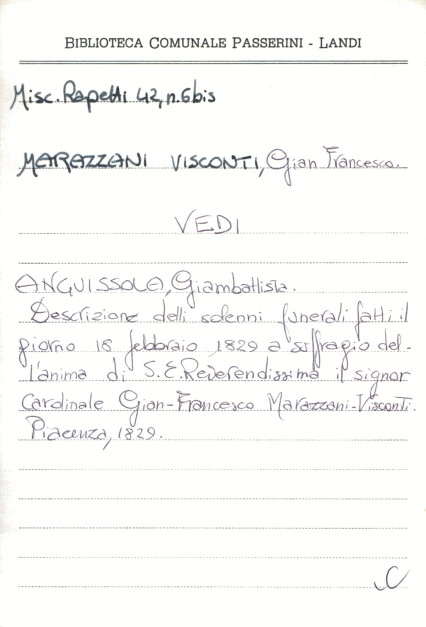 BIBLIOTECA COMUNALE PASSERINI - LANDI
Misc. Rapetti 42, n. 6 bis
MARAZZANI VISCONTI, Gian Francesco.
VEDI
ANGUISSOLA, Giambattista.
Descrizione delli solenni funerali fatti il
giorno 18 febbraio 1829 a suffragio del-
l'anima di S.E. Reverendissima il signor
Cardinale Gian-Francesco Marazzani-Visconti.
Piacenza, 1829.
C